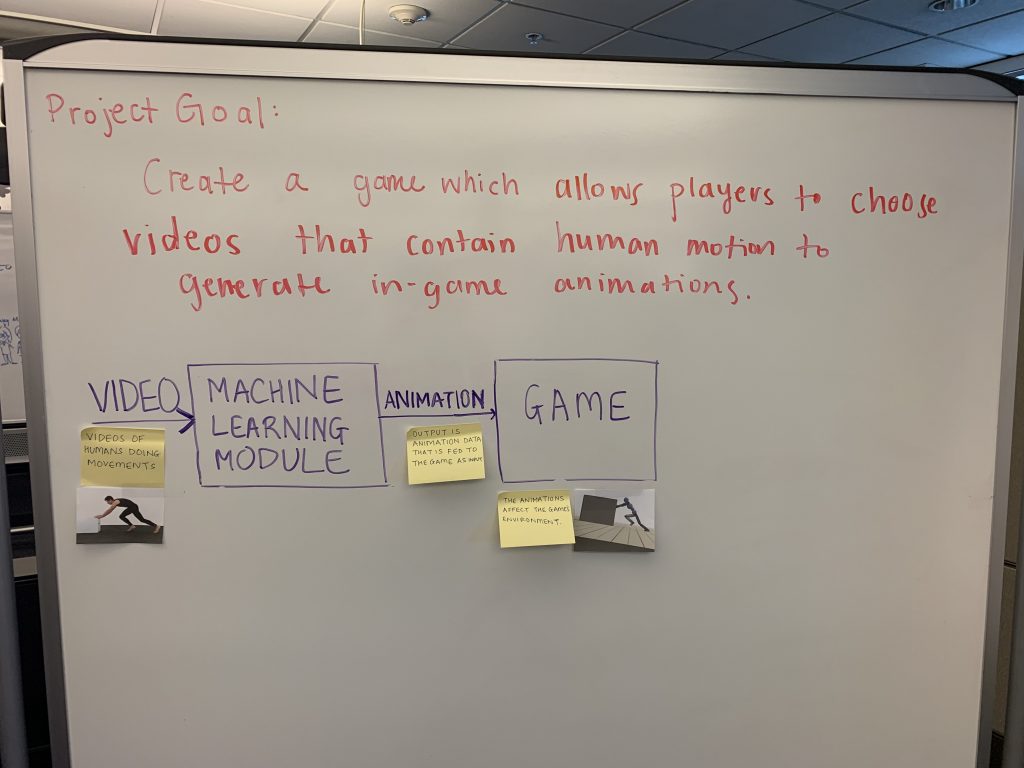 Project Goal:
Create a game which allows players to choose
videos that contain human motion to
generate in-game animations.
VIDEO
MACHINE
LEARNING
MODULE
ANIMATION
GAME
VIDEOS OF
HUMANS DOING
MOVEMENTS
OUTPUT IS
ANIMATION DATA
THAT IS FED TO
THE GAME AS INPUT
THE ANIMATIONS
AFFECT THE GAMES
ENVIRONMENT.